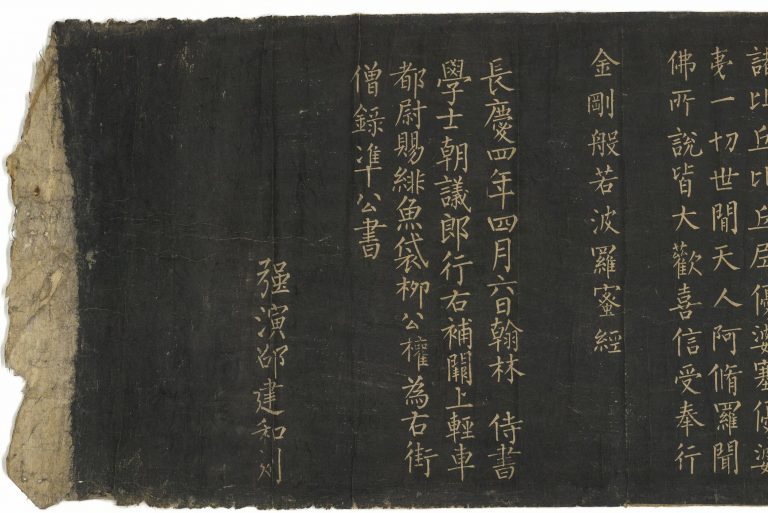 諸比丘比丘尼優婆塞優婆
夷一切世間天人阿脩羅聞
佛所說皆大歡喜信受奉行
金剛般若波羅蜜經
長慶四年四月六日翰林 侍書
學士朝議郎行右補闕上輕車
都尉賜緋魚袋柳公權為右街
僧錄准公書
强演邵建和刻